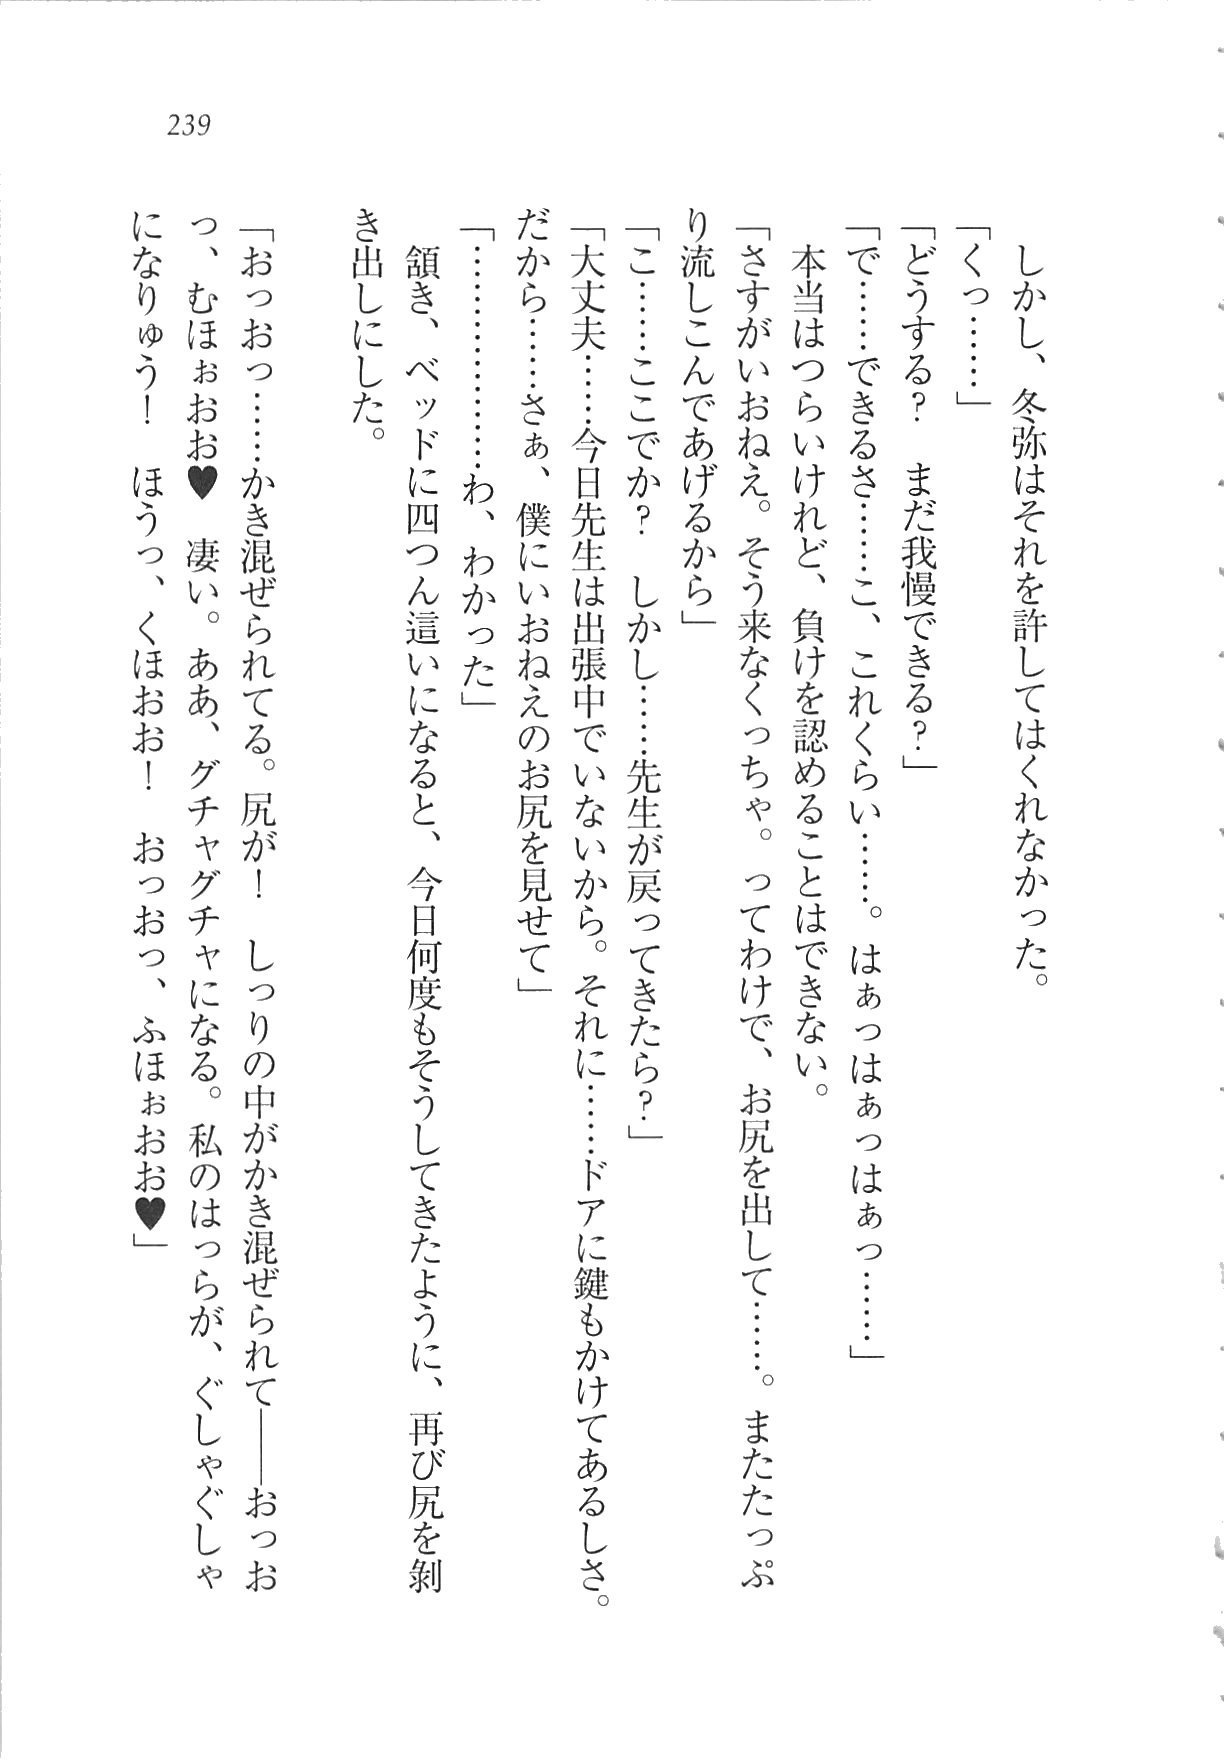 239
しかし、冬弥はそれを許してはくれなかった。
「くっ……」
「どうする？　まだ我慢できる？」
「で……できるさ……こ、これくらい……。はぁっはぁっはぁっ……」
本当はつらいけれど、負けを認めることはできない。
「さすがいおねえ。そう来なくっちゃ。ってわけで、お尻を出して……。またたっぷ
り流しこんであげるから」
「こ……ここでか？　しかし……先生が戻ってきたら？」
「大丈夫……今日先生は出張中でいないから。それに……ドアに鍵もかけてあるしさ。
だから……さぁ、僕にいおねえのお尻を見せて」
「………………わ、わかった」
頷き、ベッドに四つん這いになると、今日何度もそうしてきたように、再び尻を剝
き出しにした。
「おっおっ……かき混ぜられてる。尻が！　しっりの中がかき混ぜられて――おっお
っ、むほぉおお♥　凄い。ああ、グチャグチャになる。私のはっらが、ぐしゃぐしゃ
になりゅう！　ほうっ、くほおお！　おっおっ、ふほぉおお♥」